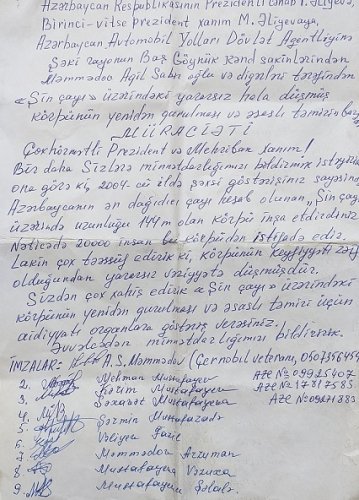 Azərbaycan Respublikasının Prezidenti cənab İ. Əliyevə,
Birinci-vitse prezident xanım M. Əliyevaya,
Azərbaycan Avtomobil Yolları Dövlət Agentliyinə
Şəki rayonun Baş Göynük kənd sakinlərindən
Məmmədov Aqil Sabir oğlu və digərləri tərəfindən
«Şin çayı» üzərindəki yararsız hala düşmüş
körpünün yenidən qurulması və əsaslı təmirinə
MÜRACİƏTİ
Çoxhörmətli Prezident və Mehriban xanım!
Bir daha Sizlərə minnətdarlığımızı bildirmək istəyirik
ona görə ki, 2004-cü ildə şəxsi göstərişiniz sayəsində
Azərbaycanın ən dağıdıcı çayı hesab olunan „Şin çayı
üzərində uzunluğu 144 m olan körpü inşa etdirdiniz
Nəticədə 20000 insan bu körpüdən istifadə edir.
Lakin çox təəssüf edirik ki, körpünün keyfiyyəti zəif
olduğundan yararsız vəziyyətə düşmüşdür.
Sizdən çox xahiş edirik «Şin çayı» üzərindəki
körpünün yenidən qurulması və əsaslı təmiri üçün
aidiyyatı orqanlara göstəriş verəsiniz.
Əvvəlcədən minnətdarlığımızı bildiririk.
İMZALAR: A.S. Məmmədov (Çernobıl veteranı,
2. Mehman Mustafayev AZE № 09925407
3. Kərim Mustafayev AZE № 17817585
4. Şəxavət Mustafayeva AZE №
5. Şərmin Mustafazadə
6. Vəliyev
7. Məmmədov
8. Mustafayeva
9. Mustafayeva